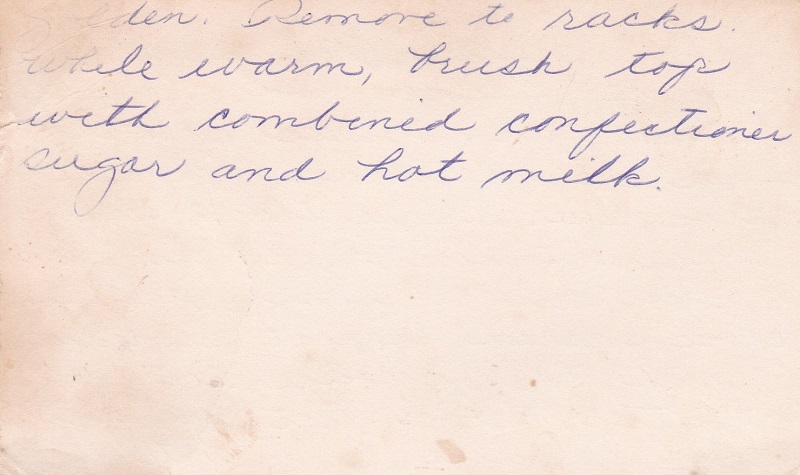 golden. Remove to racks.
While warm, brush top
with combined confectioner
sugar and hot milk.